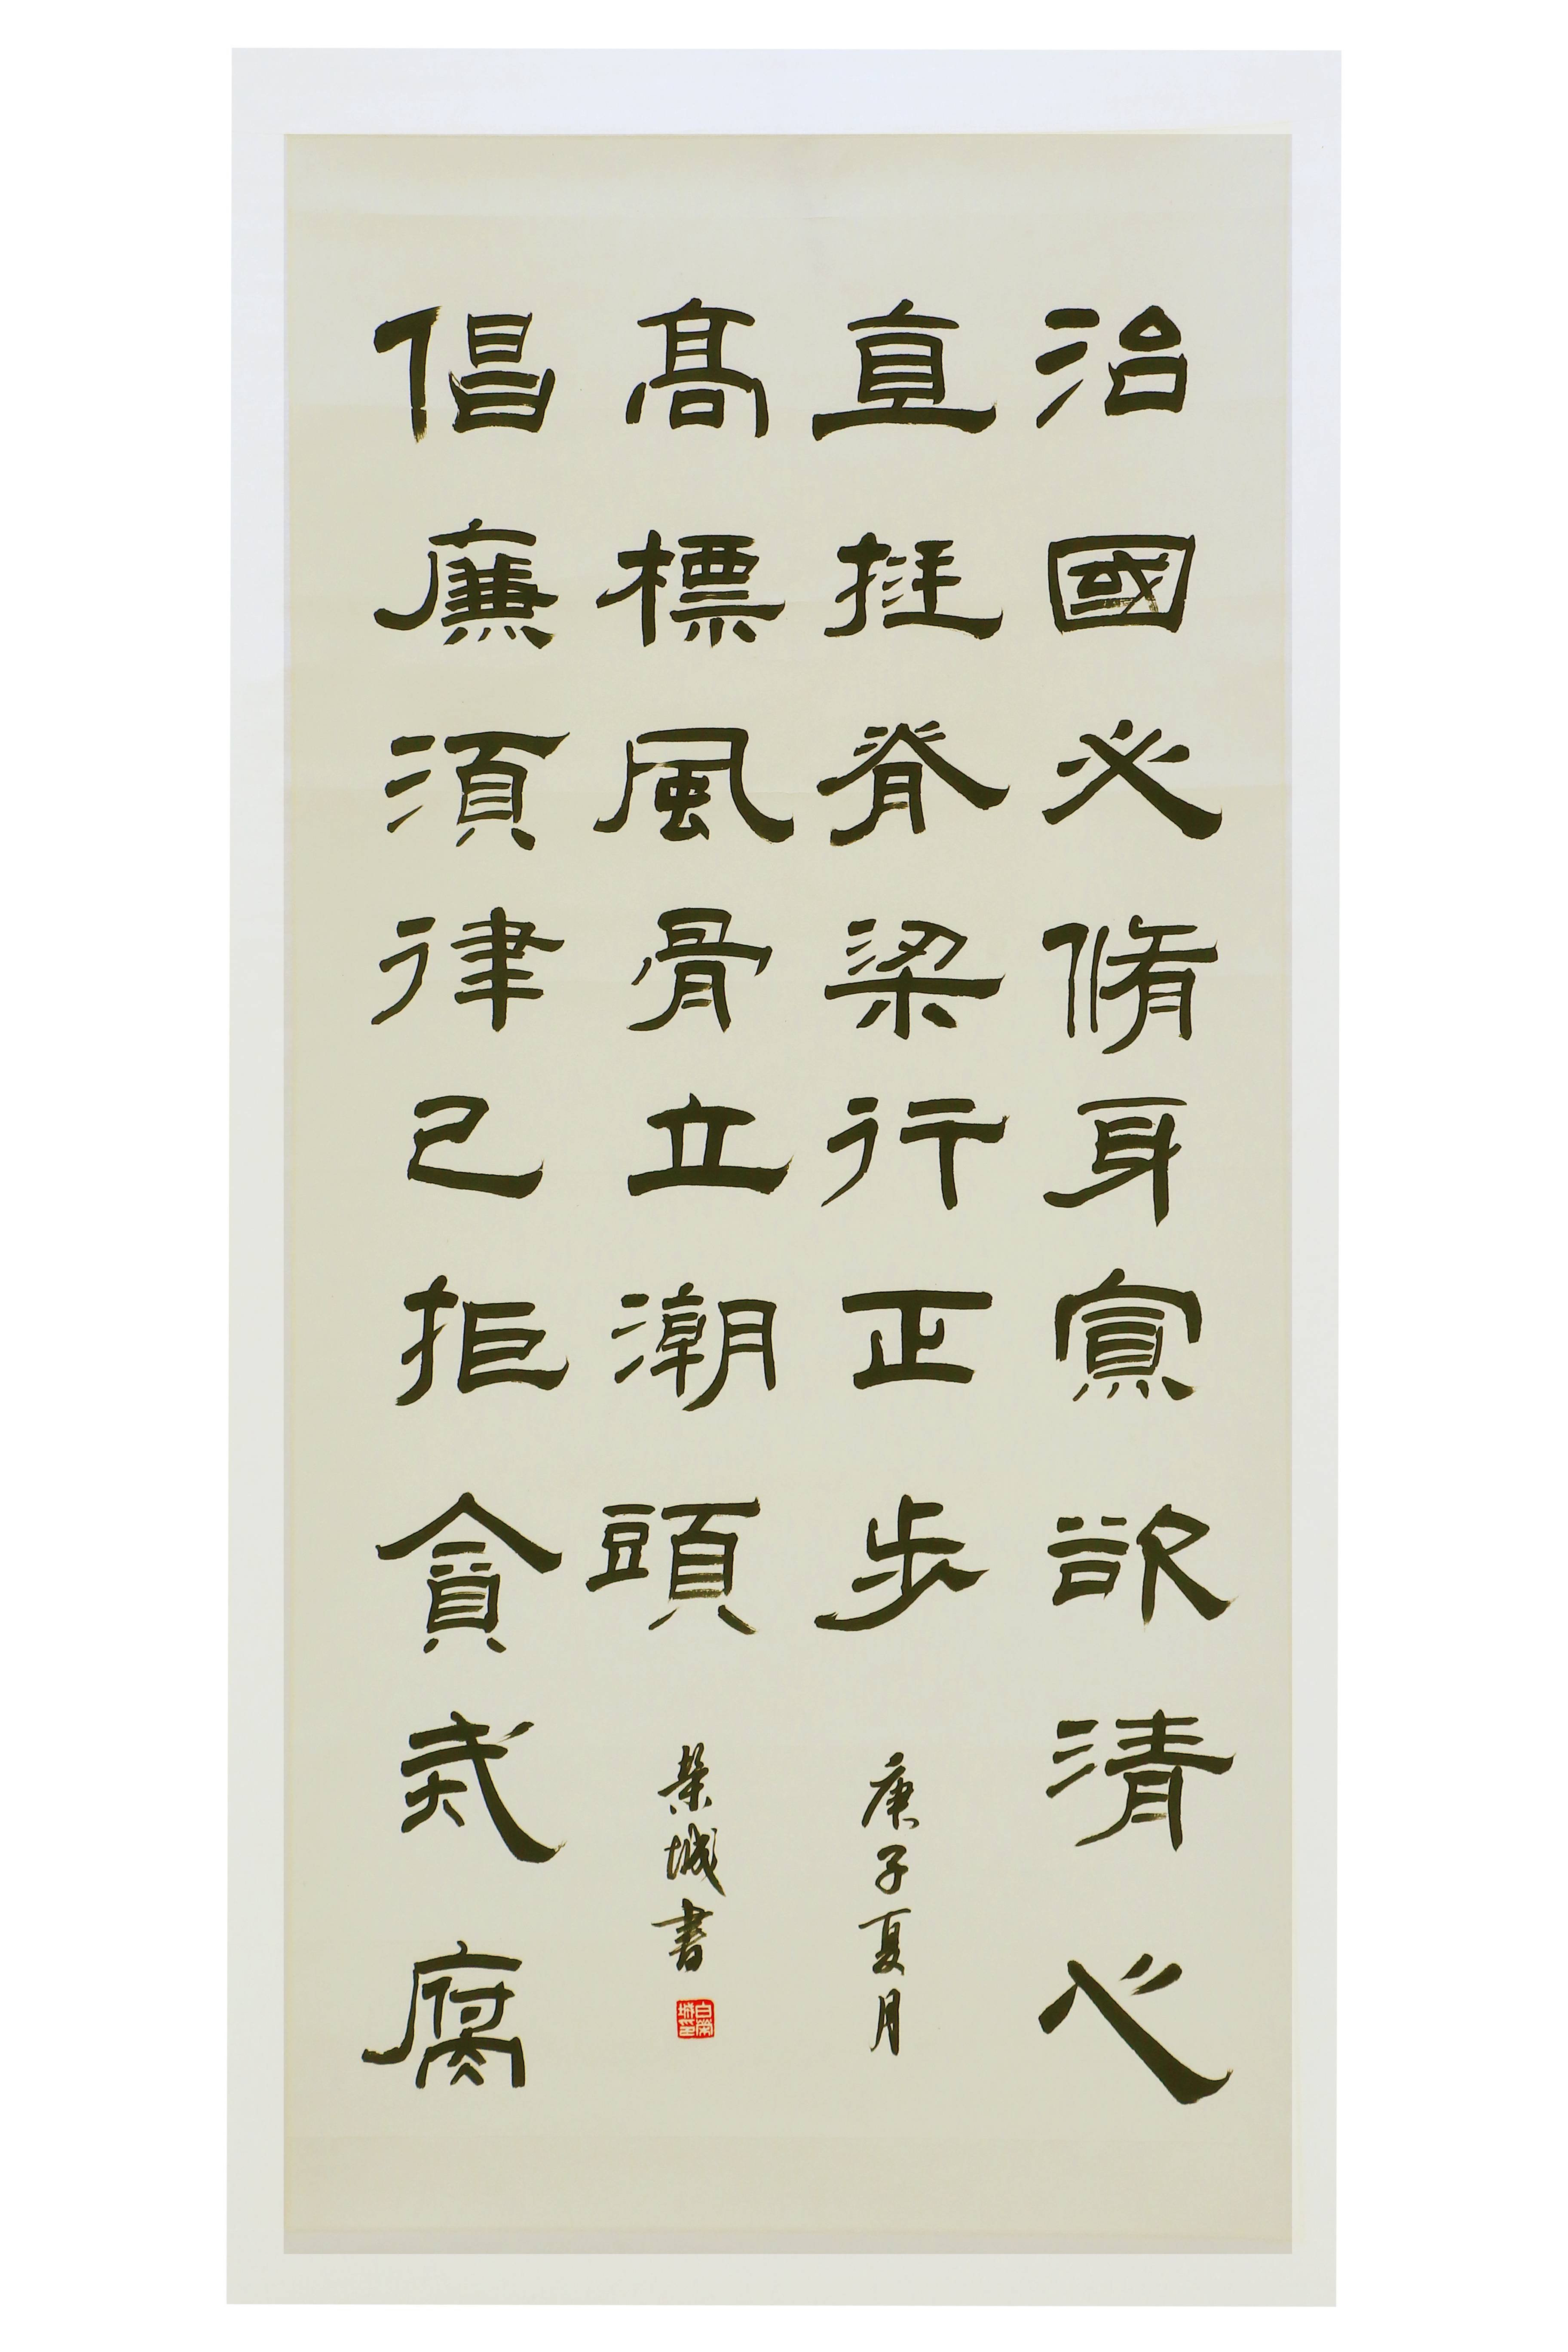 治國必脩身寡欲清心
直挺脊梁行正步
庚子夏月
倡廉須律己拒貪戒腐
高標風骨立潮頭
榮城書
白榮城印